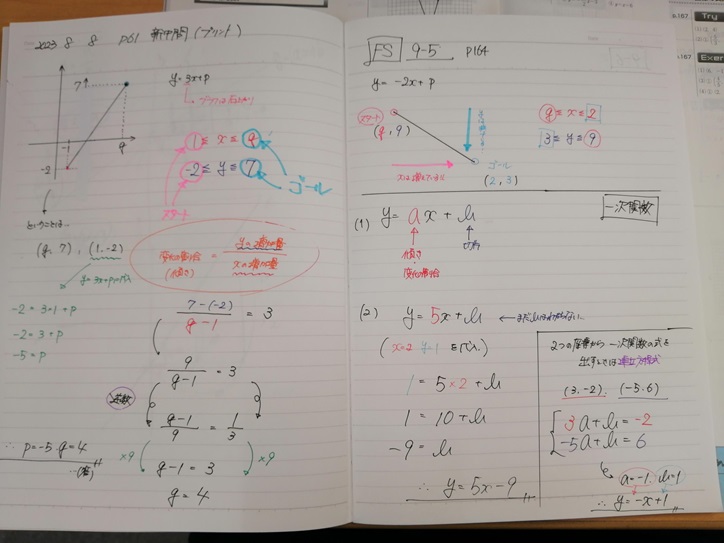 2023 8 8 P61 新中問(プリント)
y=3x+p
7
-1
q
-2
1≦x≦q
-2≦y≦7
ゴール
スタート
ということは…
(q, 7), (1, -2)
変化の割合
(傾き)
= yの増加量
xの増加量
-2=3・1+p
-2=3+p
-5=p
7-(-2)
q-1
=3
9
q-1
=3
逆数
q-1
9
=
1
3
×9
×9
q-1=3
q=4
∴ p=-5, q=4
…(答)
FS 9-5 P164
y=-2x+p
スタート
(q, 9)
ゴール
(2, 3)
q≦x≦2
3≦y≦9
一次関数
(1) y=ax+b
傾き
変化の割合
切片
(2) y=5x+b
(x=2 y=1 を代入
1=5×2+b
1=10+b
-9=b
∴ y=5x-9
2つの座標から一次関数の式を
出すときは連立方程式
(3, -2) (-5, 6)
3a+b=-2
-5a+b=6
a=-1, b=1
∴ y=-x+1
Try
P.167
Exer